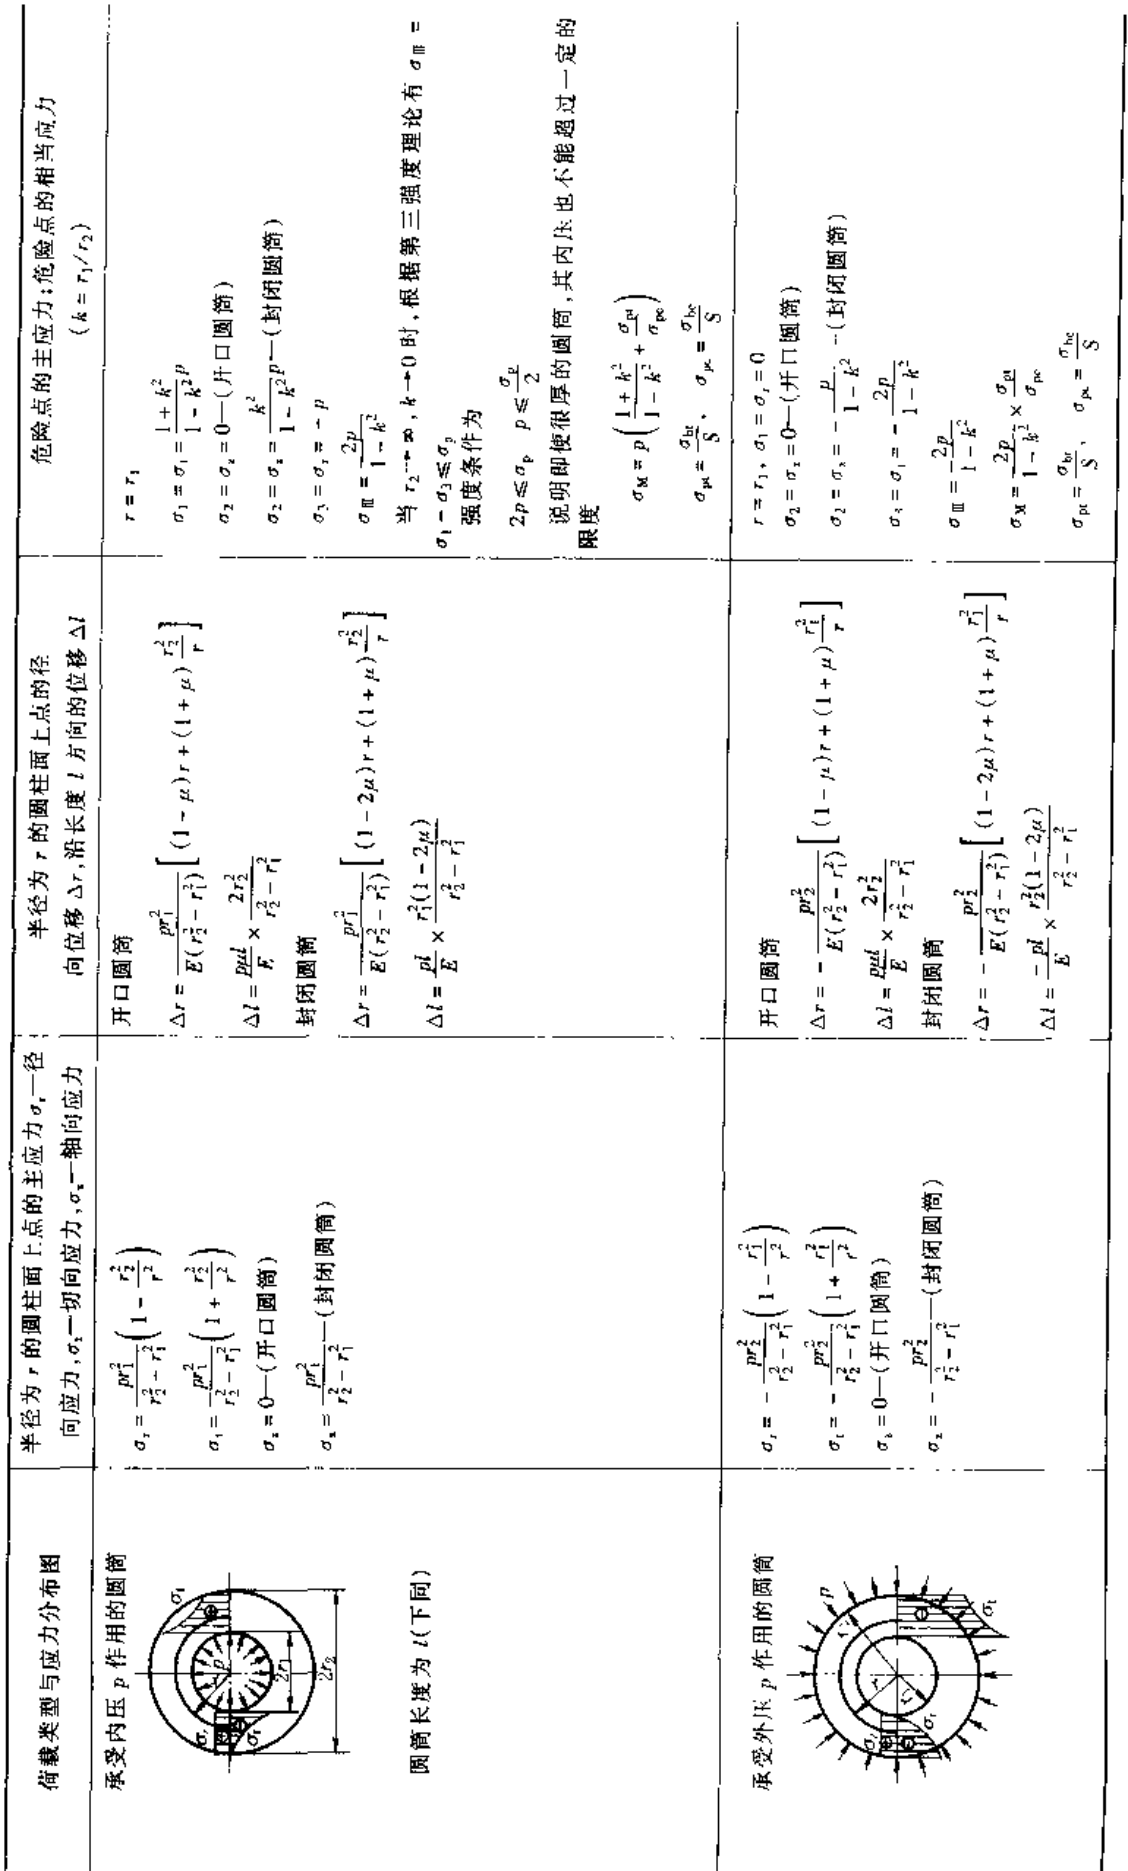 荷载类型与应力分布图
半径为 r 的圆柱面上点的主应力 σr—径
向应力,σt—切向应力,σz—轴向应力
半径为 r 的圆柱面上点的径
向位移 Δr,沿长度 l 方向的位移 Δl
危险点的主应力;危险点的相当应力
(k = r1/r2)
承受内压 p 作用的圆筒
σt
p
σr
σt
2r1
2r2
圆筒长度为 l(下同)
σr = pr1²/(r2² − r1²) (1 − r2²/r²)
σt = pr1²/(r2² − r1²) (1 + r2²/r²)
σz = 0—(开口圆筒)
σz = pr1²/(r2² − r1²)—(封闭圆筒)
开口圆筒
Δr = pr1²/E(r2² − r1²) [(1 − μ)r + (1 + μ) r2²/r]
Δl = pμl/E × 2r2²/(r2² − r1²)
封闭圆筒
Δr = pr1²/E(r2² − r1²) [(1 − 2μ)r + (1 + μ) r2²/r]
Δl = pl/E × r1²(1 − 2μ)/(r2² − r1²)
r = r1
σ1 = σt = (1 + k²)/(1 − k²) p
σ2 = σz = 0—(开口圆筒)
σ2 = σz = k²/(1 − k²) p—(封闭圆筒)
σ3 = σr = − p
σⅢ = 2p/(1 − k²)
当 r2→∞, k→0 时,根据第三强度理论有 σⅢ =
σ1 − σ3 ≤ σp
强度条件为
2p ≤ σp p ≤ σp/2
说明即使很厚的圆筒,其内压也不能超过一定的
限度
σM = p ((1 + k²)/(1 − k²) + σpt/σpc)
σpt = σbt/S、 σpc = σbc/S
承受外压 p 作用的圆筒
p
σr
σt
σt
σr = − pr2²/(r2² − r1²) (1 − r1²/r²)
σt = − pr2²/(r2² − r1²) (1 + r1²/r²)
σz = 0—(开口圆筒)
σz = − pr2²/(r2² − r1²)—(封闭圆筒)
开口圆筒
Δr = − pr2²/E(r2² − r1²) [(1 − μ)r + (1 + μ) r1²/r]
Δl = pμl/E × 2r2²/(r2² − r1²)
封闭圆筒
Δr = − pr2²/E(r2² − r1²) [(1 − 2μ)r + (1 + μ) r1²/r]
Δl = − pl/E × r2²(1 − 2μ)/(r2² − r1²)
r = r1, σ1 = σr = 0
σ2 = σz = 0—(开口圆筒)
σ2 = σz = − p/(1 − k²)—(封闭圆筒)
σ3 = σt = − 2p/(1 − k²)
σⅢ = 2p/(1 − k²)
σM = 2p/(1 − k²) × σpt/σpc
σpt = σbt/S、 σpc = σbc/S